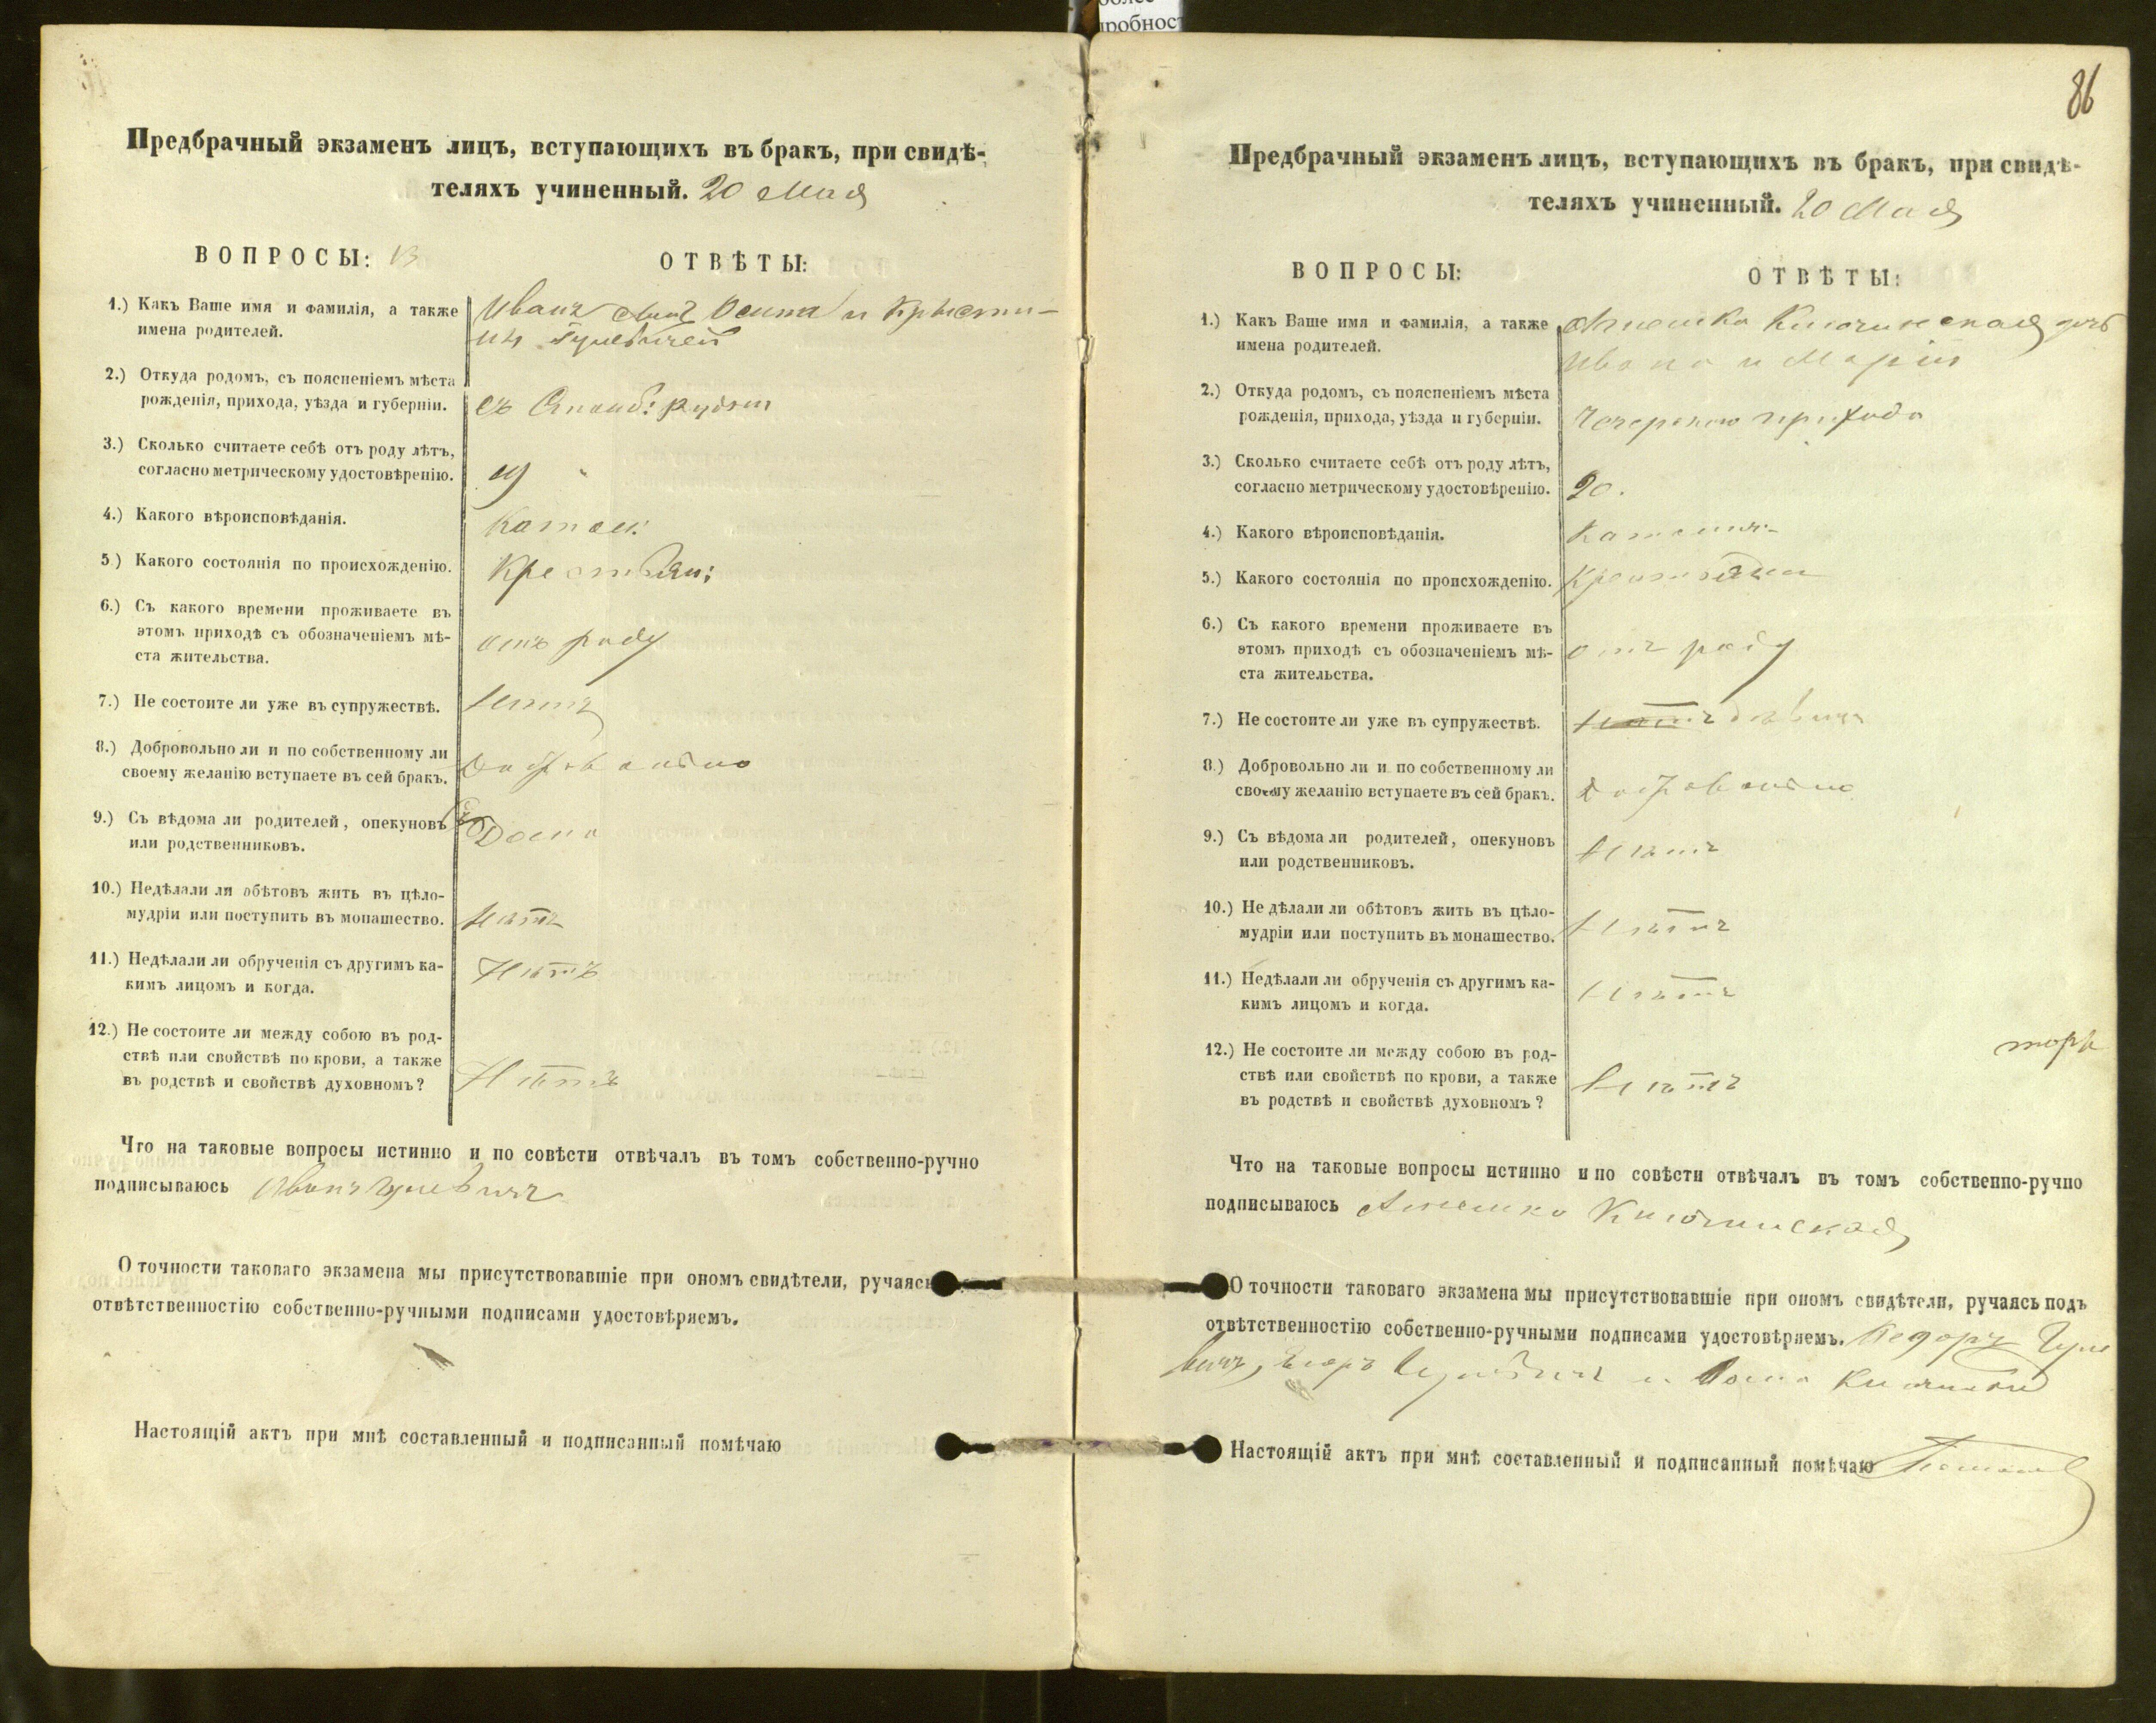 робнос
86
Предбрачный экзаменъ лицъ, вступающихъ въ бракъ, при свидѣ-
теляхъ учиненный. 20 Мая
ВОПРОСЫ:
ОТВѢТЫ:
1.) Какъ Ваше имя и фамилія, а также
имена родителей.
Иванъ сынъ Осипа и Крысти-
ны Гулевичей
2.) Откуда родомъ, съ поясненіемъ мѣста
рожденія, прихода, уѣзда и губерніи.
съ
3.) Сколько считаете себѣ отъ роду лѣтъ,
согласно метрическому удостовѣренію.
4.) Какого вѣроисповѣданія.
Катол:
5) Какого состоянія по происхожденію.
Крестьян:
6.) Съ какого времени проживаете въ
этомъ приходѣ съ обозначеніемъ мѣ-
ста жительства.
отъ роду
7.) Не состоите ли уже въ супружествѣ.
8.) Добровольно ли и по собственному ли
своему желанію вступаете въ сей бракъ.
Добровольно
9.) Съ вѣдома ли родителей, опекуновъ
или родственниковъ.
10.) Недѣлали ли обѣтовъ жить въ цѣло-
мудріи или поступить въ монашество.
Нѣтъ
11.) Недѣлали ли обрученія съ другимъ ка-
кимъ лицомъ и когда.
Нѣтъ
12.) Не состоите ли между собою въ род-
ствѣ или свойствѣ по крови, а также
въ родствѣ и свойствѣ духовномъ?
Нѣтъ
Что на таковые вопросы истинно и по совѣсти отвѣчалъ въ томъ собственно-ручно
подписываюсь Иванъ Гулевичъ
О точности таковаго экзамена мы присутствовавшіе при ономъ свидѣтели, ручаясь
отвѣтственностію собственно-ручными подписами удостовѣряемъ.
Настоящій актъ при мнѣ составленный и подписанный помѣчаю
Предбрачный экзаменъ лицъ, вступающихъ въ бракъ, при свидѣ-
теляхъ учиненный. 20 Мая
ВОПРОСЫ:
ОТВѢТЫ:
1.) Какъ Ваше имя и фамилія, а также
имена родителей.
дочь
Ивана и Маріи
2.) Откуда родомъ, съ поясненіемъ мѣста
рожденія, прихода, уѣзда и губерніи.
Чечерскаго прихода
3.) Сколько считаете себѣ отъ роду лѣтъ,
согласно метрическому удостовѣренію.
20.
4.) Какого вѣроисповѣданія.
5.) Какого состоянія по происхожденію.
Крестьянка
6.) Съ какого времени проживаете въ
этомъ приходѣ съ обозначеніемъ мѣ-
ста жительства.
отъ роду
7.) Не состоите ли уже въ супружествѣ.
дѣвица
8.) Добровольно ли и по собственному ли
своему желанію вступаете въ сей бракъ.
Добровольно
9.) Съ вѣдома ли родителей, опекуновъ
или родственниковъ.
Нѣтъ
10.) Не дѣлали ли обѣтовъ жить въ цѣло-
мудріи или поступить въ монашество.
Нѣтъ
11.) Недѣлали ли обрученія съ другимъ ка-
кимъ лицомъ и когда.
Нѣтъ
12.) Не состоите ли между собою въ род-
ствѣ или свойствѣ по крови, а также
въ родствѣ и свойствѣ духовномъ?
Нѣтъ
Что на таковые вопросы истинно и по совѣсти отвѣчалъ въ томъ собственно-ручно
подписываюсь
О точности таковаго экзамена мы присутствовавшіе при ономъ свидѣтели, ручаясь подъ
отвѣтственностію собственно-ручными подписами удостовѣряемъ. Гуле
вичъ, и
Настоящій актъ при мнѣ составленный и подписанный помѣчаю